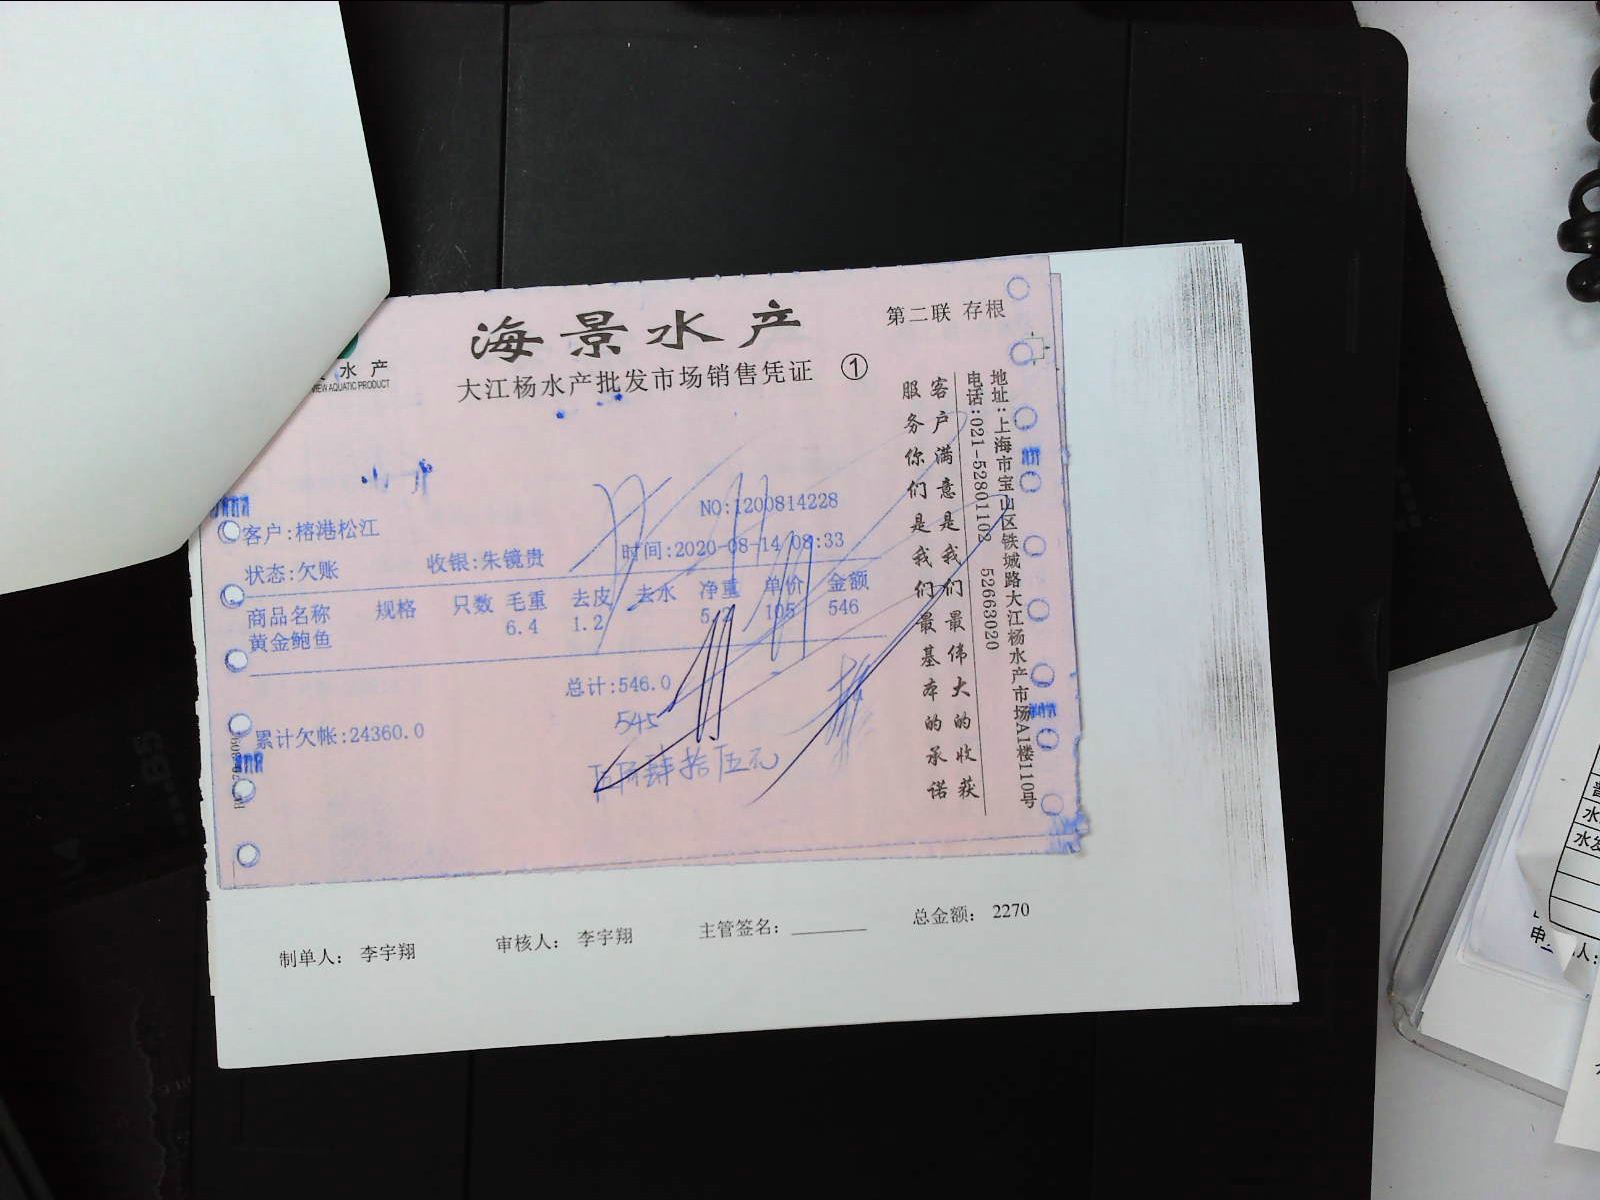 海景水产
第二联 存根
大江杨水产批发市场销售凭证 ①
水产
VIEW AQUATIC PRODUCT
NO:1200814228
客户:榕港松江
状态:欠账 收银:朱镜贵 时间:2020-08-14 08:33
商品名称 规格 只数 毛重 去皮 去水 净重 单价 金额
黄金鲍鱼 6.4 1.2 5.2 105 546
总计:546.0
545
伍佰肆拾伍元
累计欠帐:24360.0
客户满意是我们最伟大的收获
服务你们是我们最基本的承诺
地址:上海市宝山区铁城路大江杨水产市场A1楼110号
电话:021-52801102 52663020
制单人: 李宇翔 审核人: 李宇翔 主管签名: 总金额: 2270